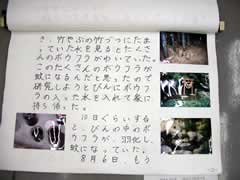 き、竹やぶの竹づつにたま
っていた水を見るとたくさ
んのボウフラがわいていた。
このたくさんのボウフラが
蚊になるんだと思ったので
研究しようとびんにボウフ
ラの入った水を入れて家に
持ち帰った。
10日ぐらいする
と、びんの中のボ
ウフラが、羽化し、
蚊になっていた。
8月6日、もう